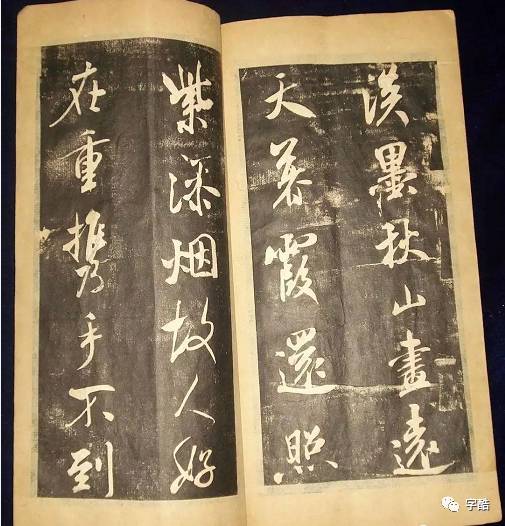 淡墨秋山畫遠
天暮霞還照
紫添烟故人好
在重携手不到
字酷